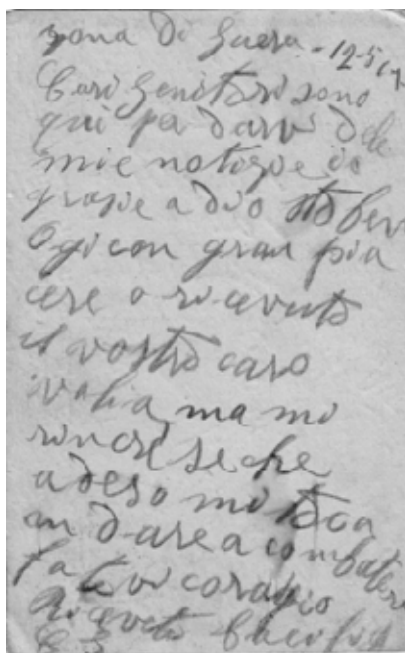 zona di Guera - 12-5-17
Cari Genitori sono
qui pa darvi dele
mie notizie io
grazie a dio stò ben
Ogi con gran pia
cere o ricevuto
il vostro caro
valia, ma mi
rincrese che
adeso mi toca
an dare a combatere
fatevi coragio
Ricevete baci